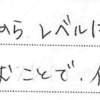 から レベルに
むことで、